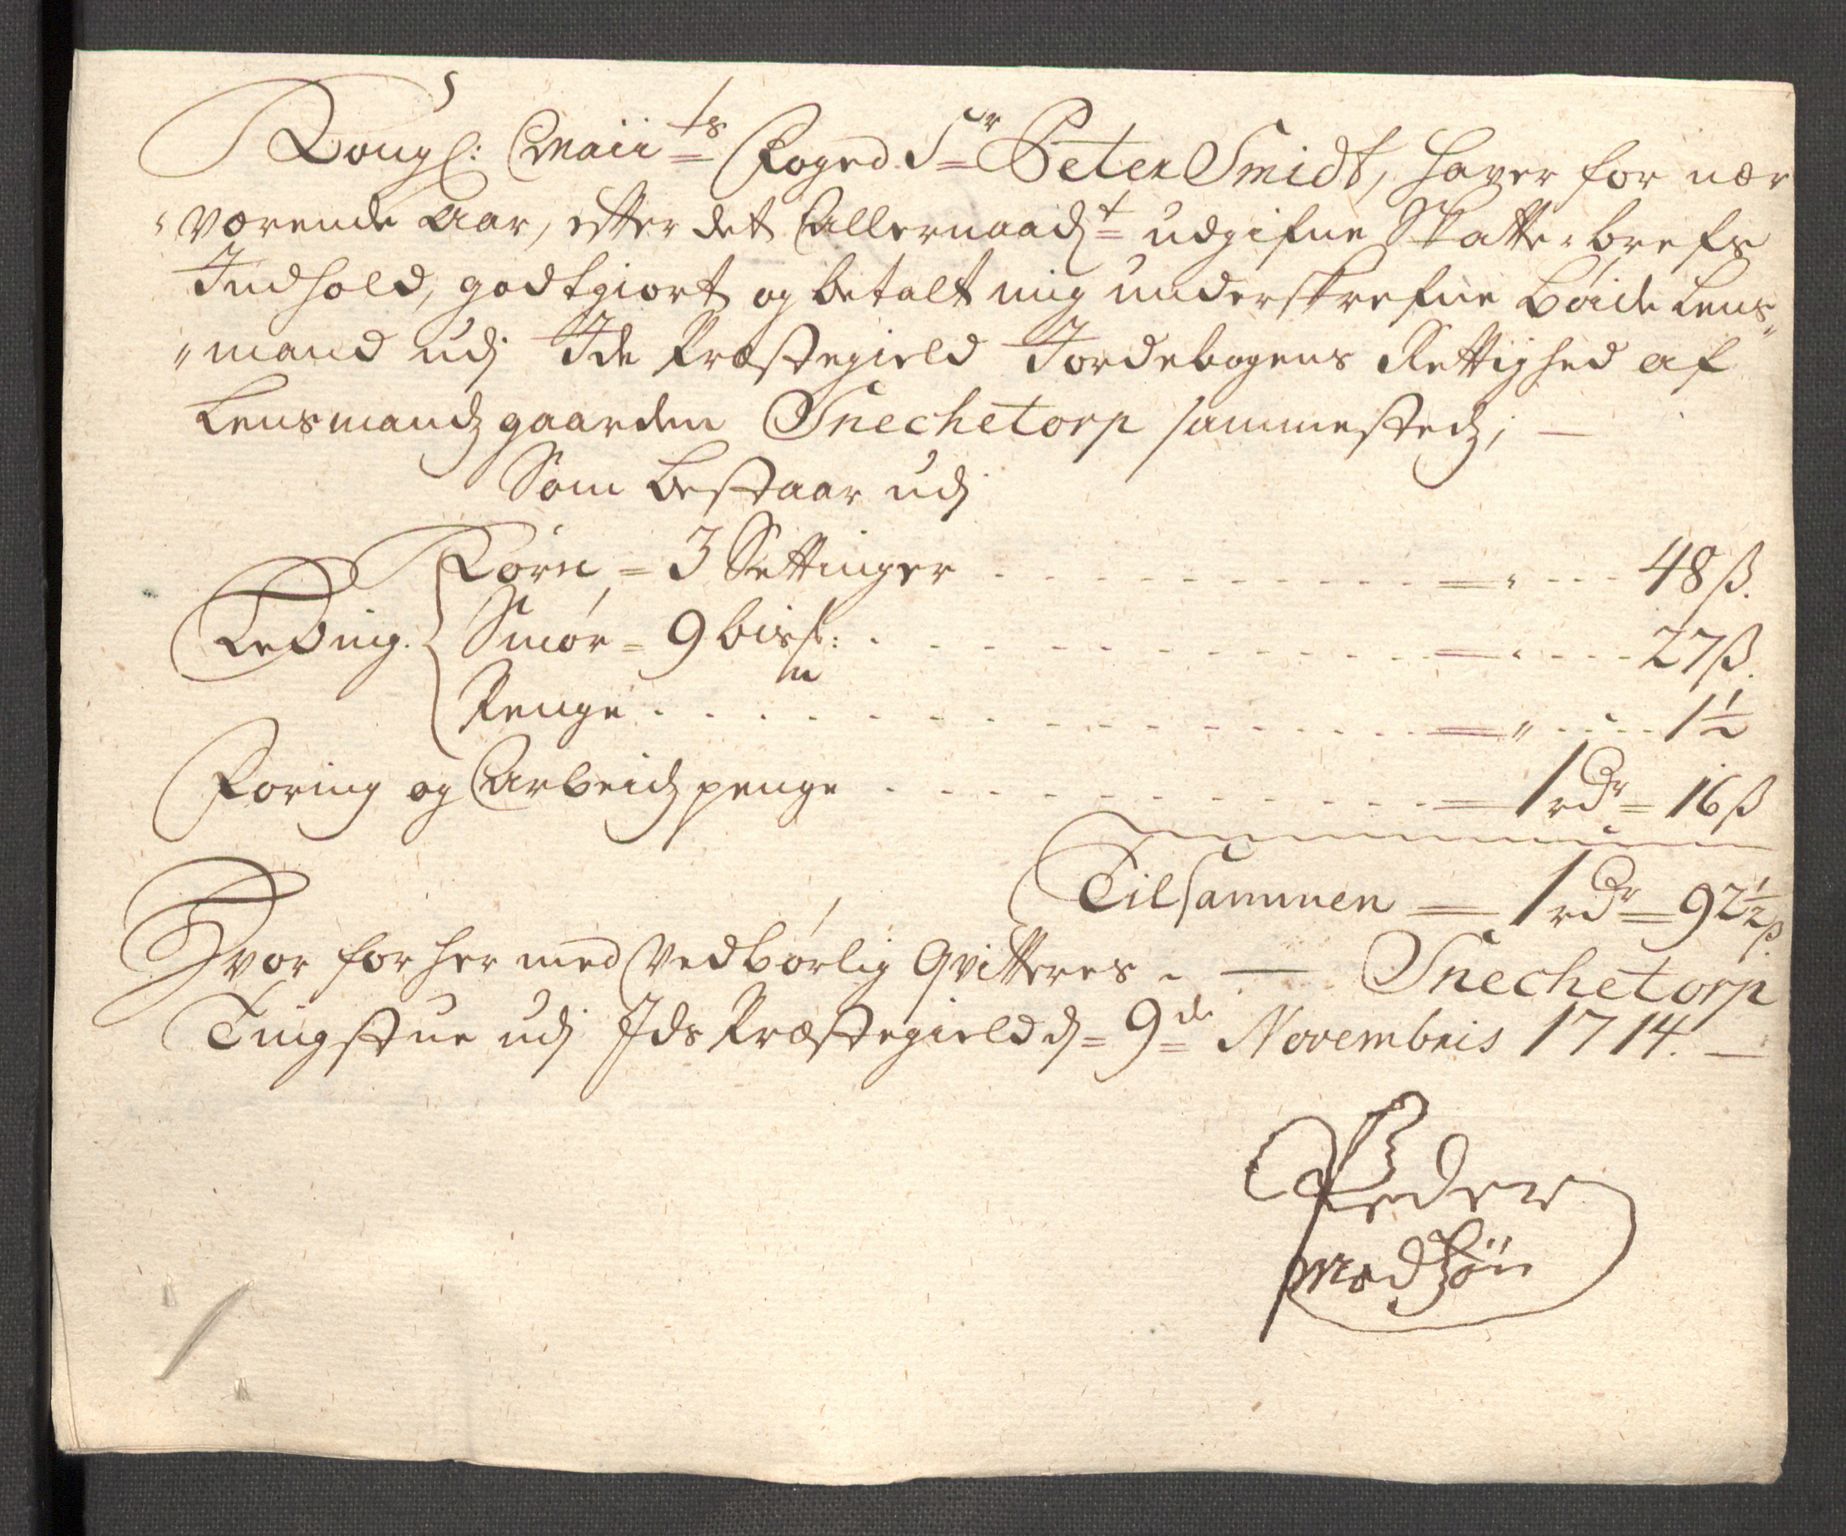 Kongl: Maii ts Foged Sr Peter Smidt, hafver for nær
værende Aar, efter det Allernaadt udgifne Skatte-brefs
Indhold, godtgiort og betalt mig underskrefne Böide Lens-
"mand udj Ide Præstegield Jordebogens Rettighed af
Lensmandz gaarden Snechetorp sammestedz, —
Som bestaar udj
Leding. { Korn = 3 Settinger . . . . 48 ß.
Smør = 9 bismr: . . . . 27 ß.
Penge . . . . 1½
Foring og Arbeidz penge . . . . 1 rdr = 16 ß
Tilsammen — 1 rdr = 92½ ß.
Hvor for her med Vedbørlig Qvitteres. — Snechetorp
Tingstue udj Ids Præstegield d = 9de Novembris 1714. —
Peder
Madßön